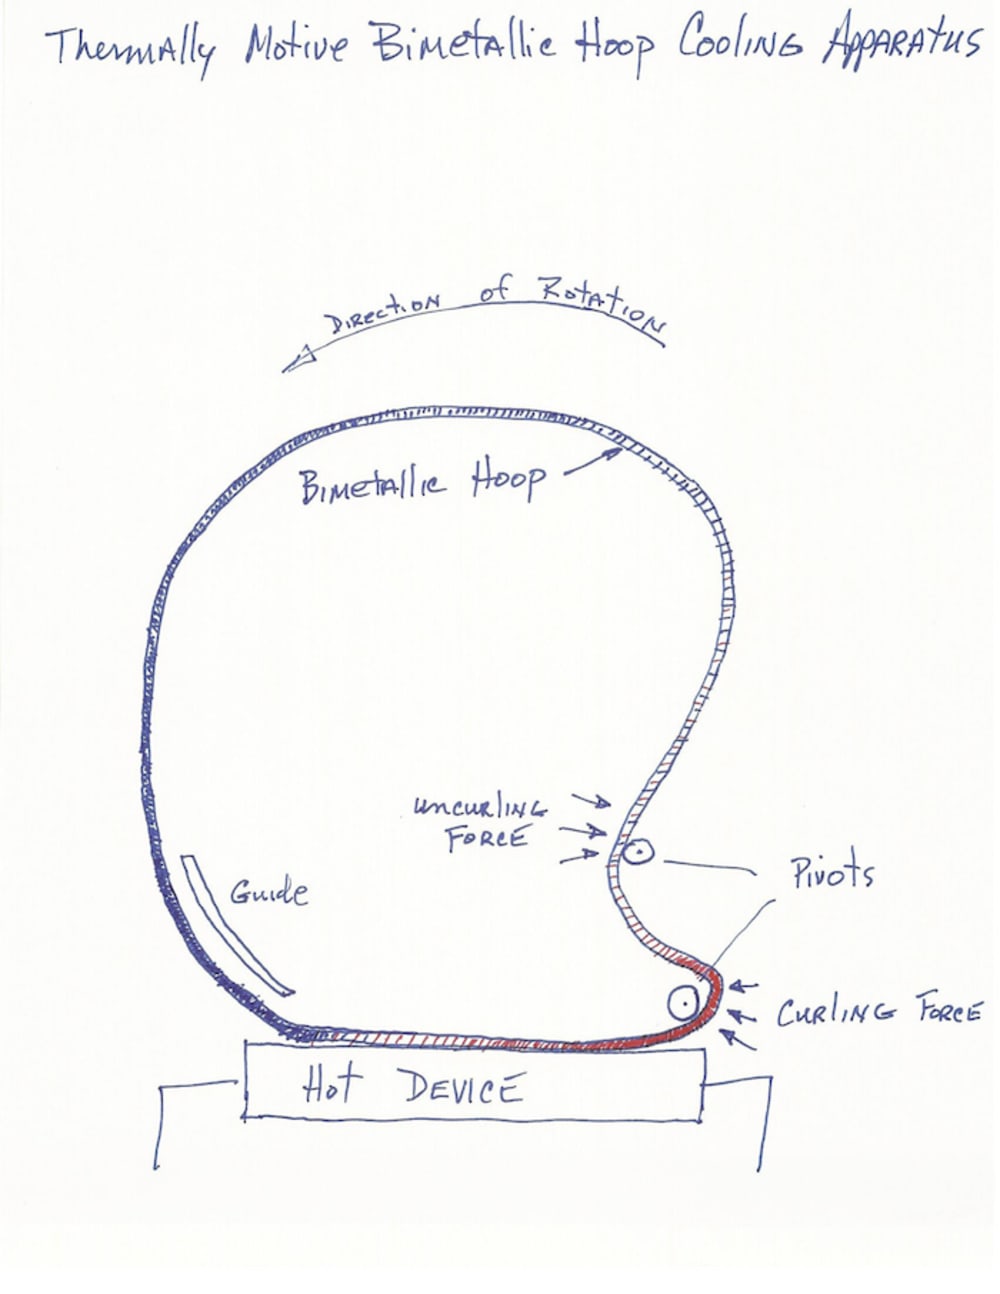 Thermally Motive Bimetallic Hoop Cooling Apparatus
Direction of Rotation
Bimetallic Hoop
uncurling
Force
Pivots
Guide
Curling Force
Hot Device